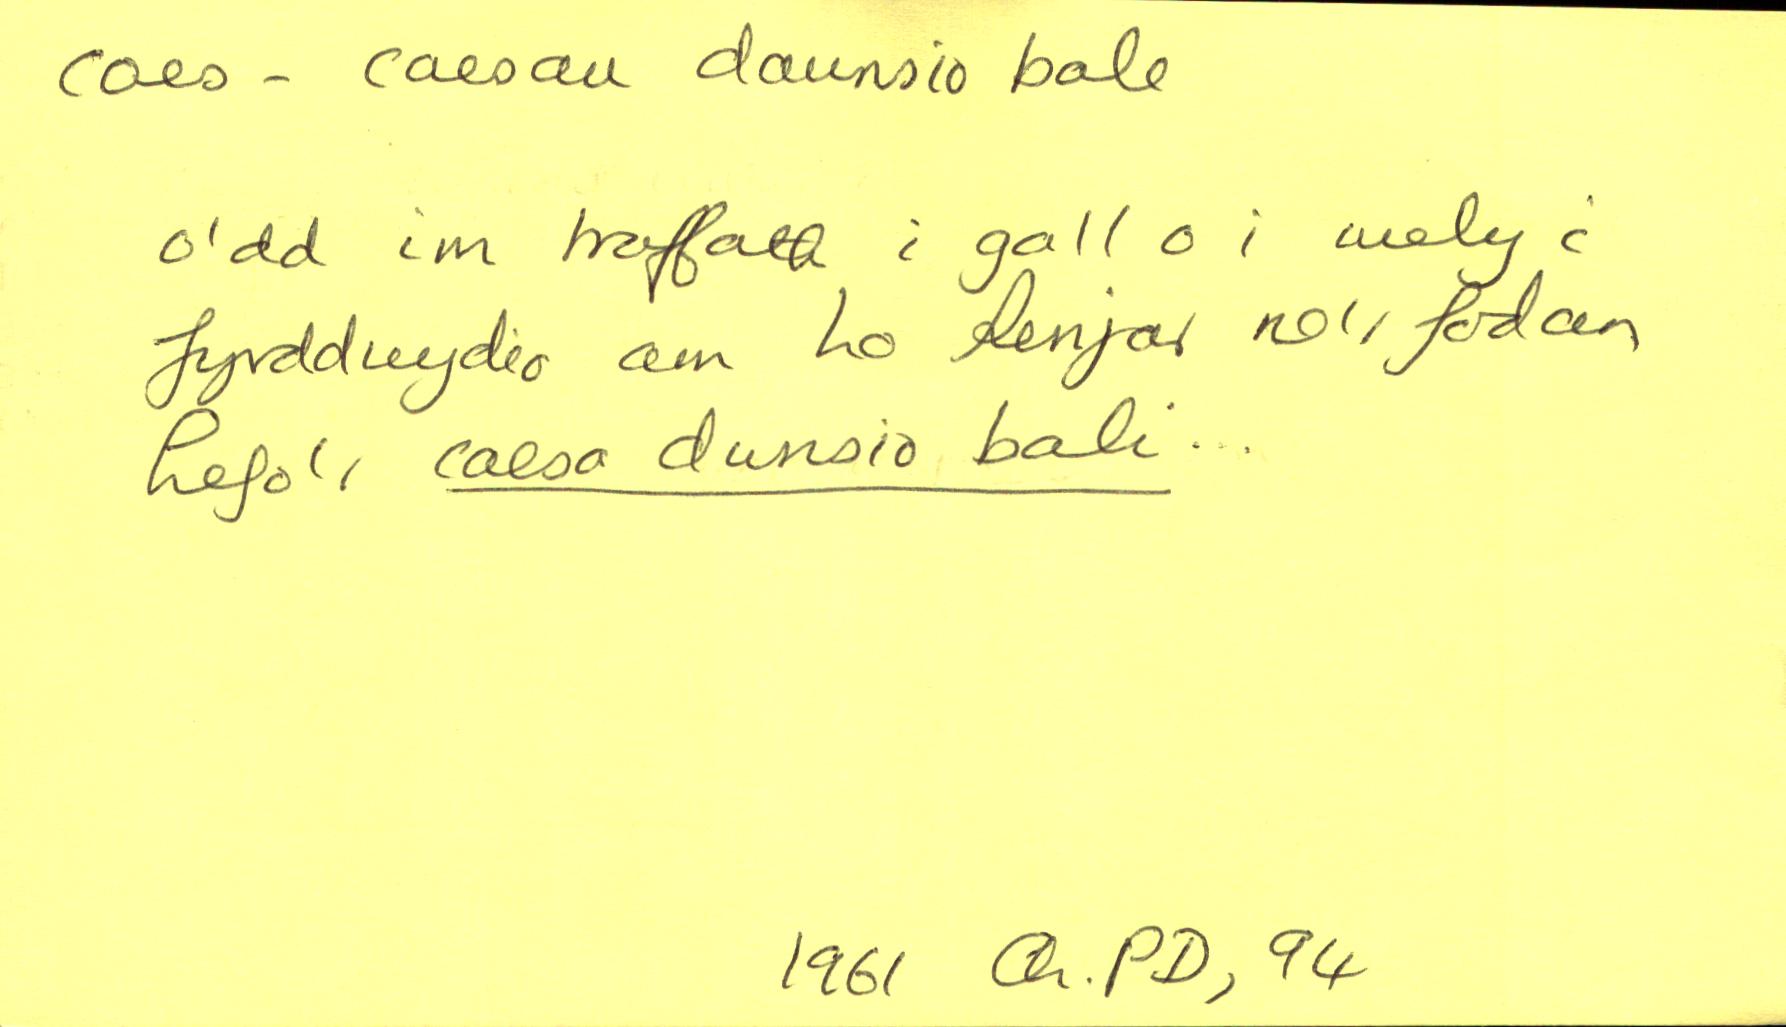 caes - caesau daunsio bale
o'dd im traffath i gall o i wely i
fyrddwydio am ho lenjar no'r fodan
hefo'r caesa dunsio bali...
1961 Ch.PD, 94